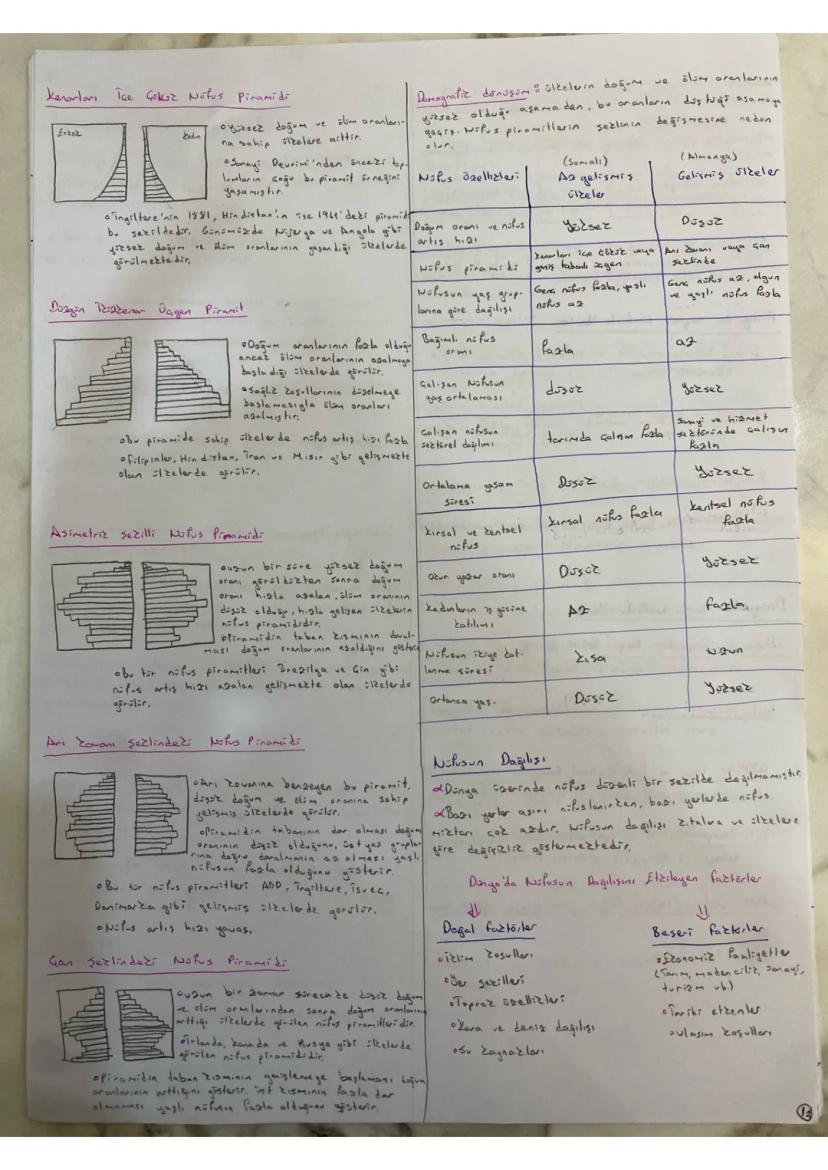 Kenarları İçe Çökük Nüfus Piramidi
Erkek
Kadın
•Yüksek doğum ve ölüm oranları-
na sahip ülkelere aittir.
•Sanayi Devrimi'nden önceki top-
lumların çoğu bu piramit örneğini
yaşamıştır.
•İngiltere'nin 1881, Hindistan'ın ise 1961'deki piramidi
bu şekildedir. Günümüzde Nijerya ve Angola gibi
yüksek doğum ve ölüm oranlarının yaşandığı ülkelerde
görülmektedir.
Düzgün İkizkenar Üçgen Piramit
•Doğum oranlarının fazla olduğu
ancak ölüm oranlarının azalmaya
başladığı ülkelerde görülür.
•Sağlık koşullarının düzelmeye
başlamasıyla ölüm oranları
azalmıştır.
•Bu piramide sahip ülkelerde nüfus artış hızı fazla
•Filipinler, Hindistan, İran ve Mısır gibi gelişmekte
olan ülkelerde görülür.
Asimetrik Şekilli Nüfus Piramidi
•uzun bir süre yüksek doğum
oranı görüldükten sonra doğum
oranı hızla azalan, ölüm oranının
düşük olduğu, hızla gelişen ülkelerin
nüfus piramididir.
•Piramidin taban kısmının daral-
ması doğum oranlarının azaldığını gösterir
•Bu tür nüfus piramitleri Brezilya ve Çin gibi
nüfus artış hızı azalan gelişmekte olan ülkelerde
görülür.
Arı Kovanı Şeklindeki Nüfus Piramidi
•Arı kovanına benzeyen bu piramit,
düşük doğum ve ölüm oranına sahip
gelişmiş ülkelerde görülür.
•Piramidin tabanının dar olması doğum
oranının düşük olduğunu, üst yaş grupla-
rına doğru daralmanın az olması yaşlı
nüfusun fazla olduğunu gösterir.
•Bu tür nüfus piramitleri ABD, İngiltere, İsveç,
Danimarka gibi gelişmiş ülkelerde görülür.
•Nüfus artış hızı yavaş.
Çan Şeklindeki Nüfus Piramidi
•uzun bir zaman sürecinde düşük doğum
ve ölüm oranlarından sonra doğum oranlarının
arttığı ülkelerde görülen nüfus piramitleridir.
•İrlanda, Kanada ve Rusya gibi ülkelerde
görülen nüfus piramididir.
•Piramidin taban kısmının genişlemeye başlaması doğum
oranlarının arttığını gösterir. üst kısmının fazla dar
olmaması yaşlı nüfusun fazla olduğunu gösterir.
Demografik dönüşüm: ülkelerin doğum ve ölüm oranlarının
yüksek olduğu aşamadan, bu oranların düştüğü aşamaya
geçiş. Nüfus piramitlerin şeklinin değişmesine neden
olur.
(Somali) (Almanya)
Nüfus özellikleri Az gelişmiş ülkeler Gelişmiş ülkeler
Doğum oranı ve nüfus artış hızı Yüksek Düşük
Nüfus piramidi Kenarları içe çökük veya geniş tabanlı üçgen Arı kovanı veya çan şeklinde
Nüfusun yaş grup-larına göre dağılışı Genç nüfus fazla, yaşlı nüfus az Genç nüfus az, olgun ve yaşlı nüfus fazla
Bağımlı nüfus oranı fazla az
Çalışan Nüfusun yaş ortalaması düşük yüksek
Çalışan nüfusun sektörel dağılımı tarımda çalışan fazla Sanayi ve hizmet sektöründe çalışan fazla
Ortalama yaşam süresi Düşük Yüksek
Kırsal ve kentsel nüfus Kırsal nüfus fazla Kentsel nüfus fazla
Okur yazar oranı Düşük Yüksek
Kadınların iş gücüne katılımı Az fazla
Nüfusun ikiye kat-lanma süresi kısa uzun
Ortanca yaş. Düşük Yüksek
Nüfusun Dağılışı
∝Dünya üzerinde nüfus düzenli bir şekilde dağılmamıştır.
∝Bazı yerler aşırı nüfuslanırken, bazı yerlerde nüfus
miktarı çok azdır. Nüfusun dağılışı kıtalara ve ülkelere
göre değişiklik göstermektedir.
Dünya'da Nüfusun Dağılışını Etkileyen faktörler
⇓ ⇓
Doğal faktörler
•iklim koşulları
•Yer şekilleri
•Toprak özellikleri
•Kara ve deniz dağılışı
•Su kaynakları
Beşeri faktörler
•Ekonomik faaliyetler
(Tarım, madencilik, sanayi,
turizm vb.)
•Tarihi etkenler
•ulaşım koşulları
13